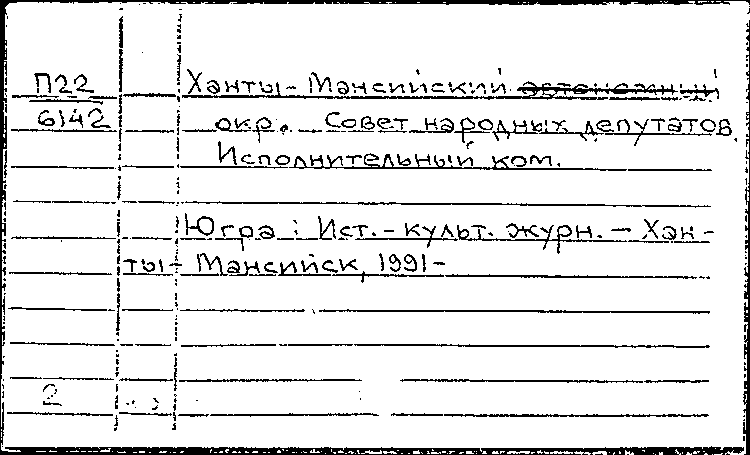 П22 Ханты- Мансийский автономный
6142 окр. Совет народных депутатов.
Исполнительный ком.
Югра : Ист.- культ. журн. — Хан-
ты- Мансийск, 1991-
2